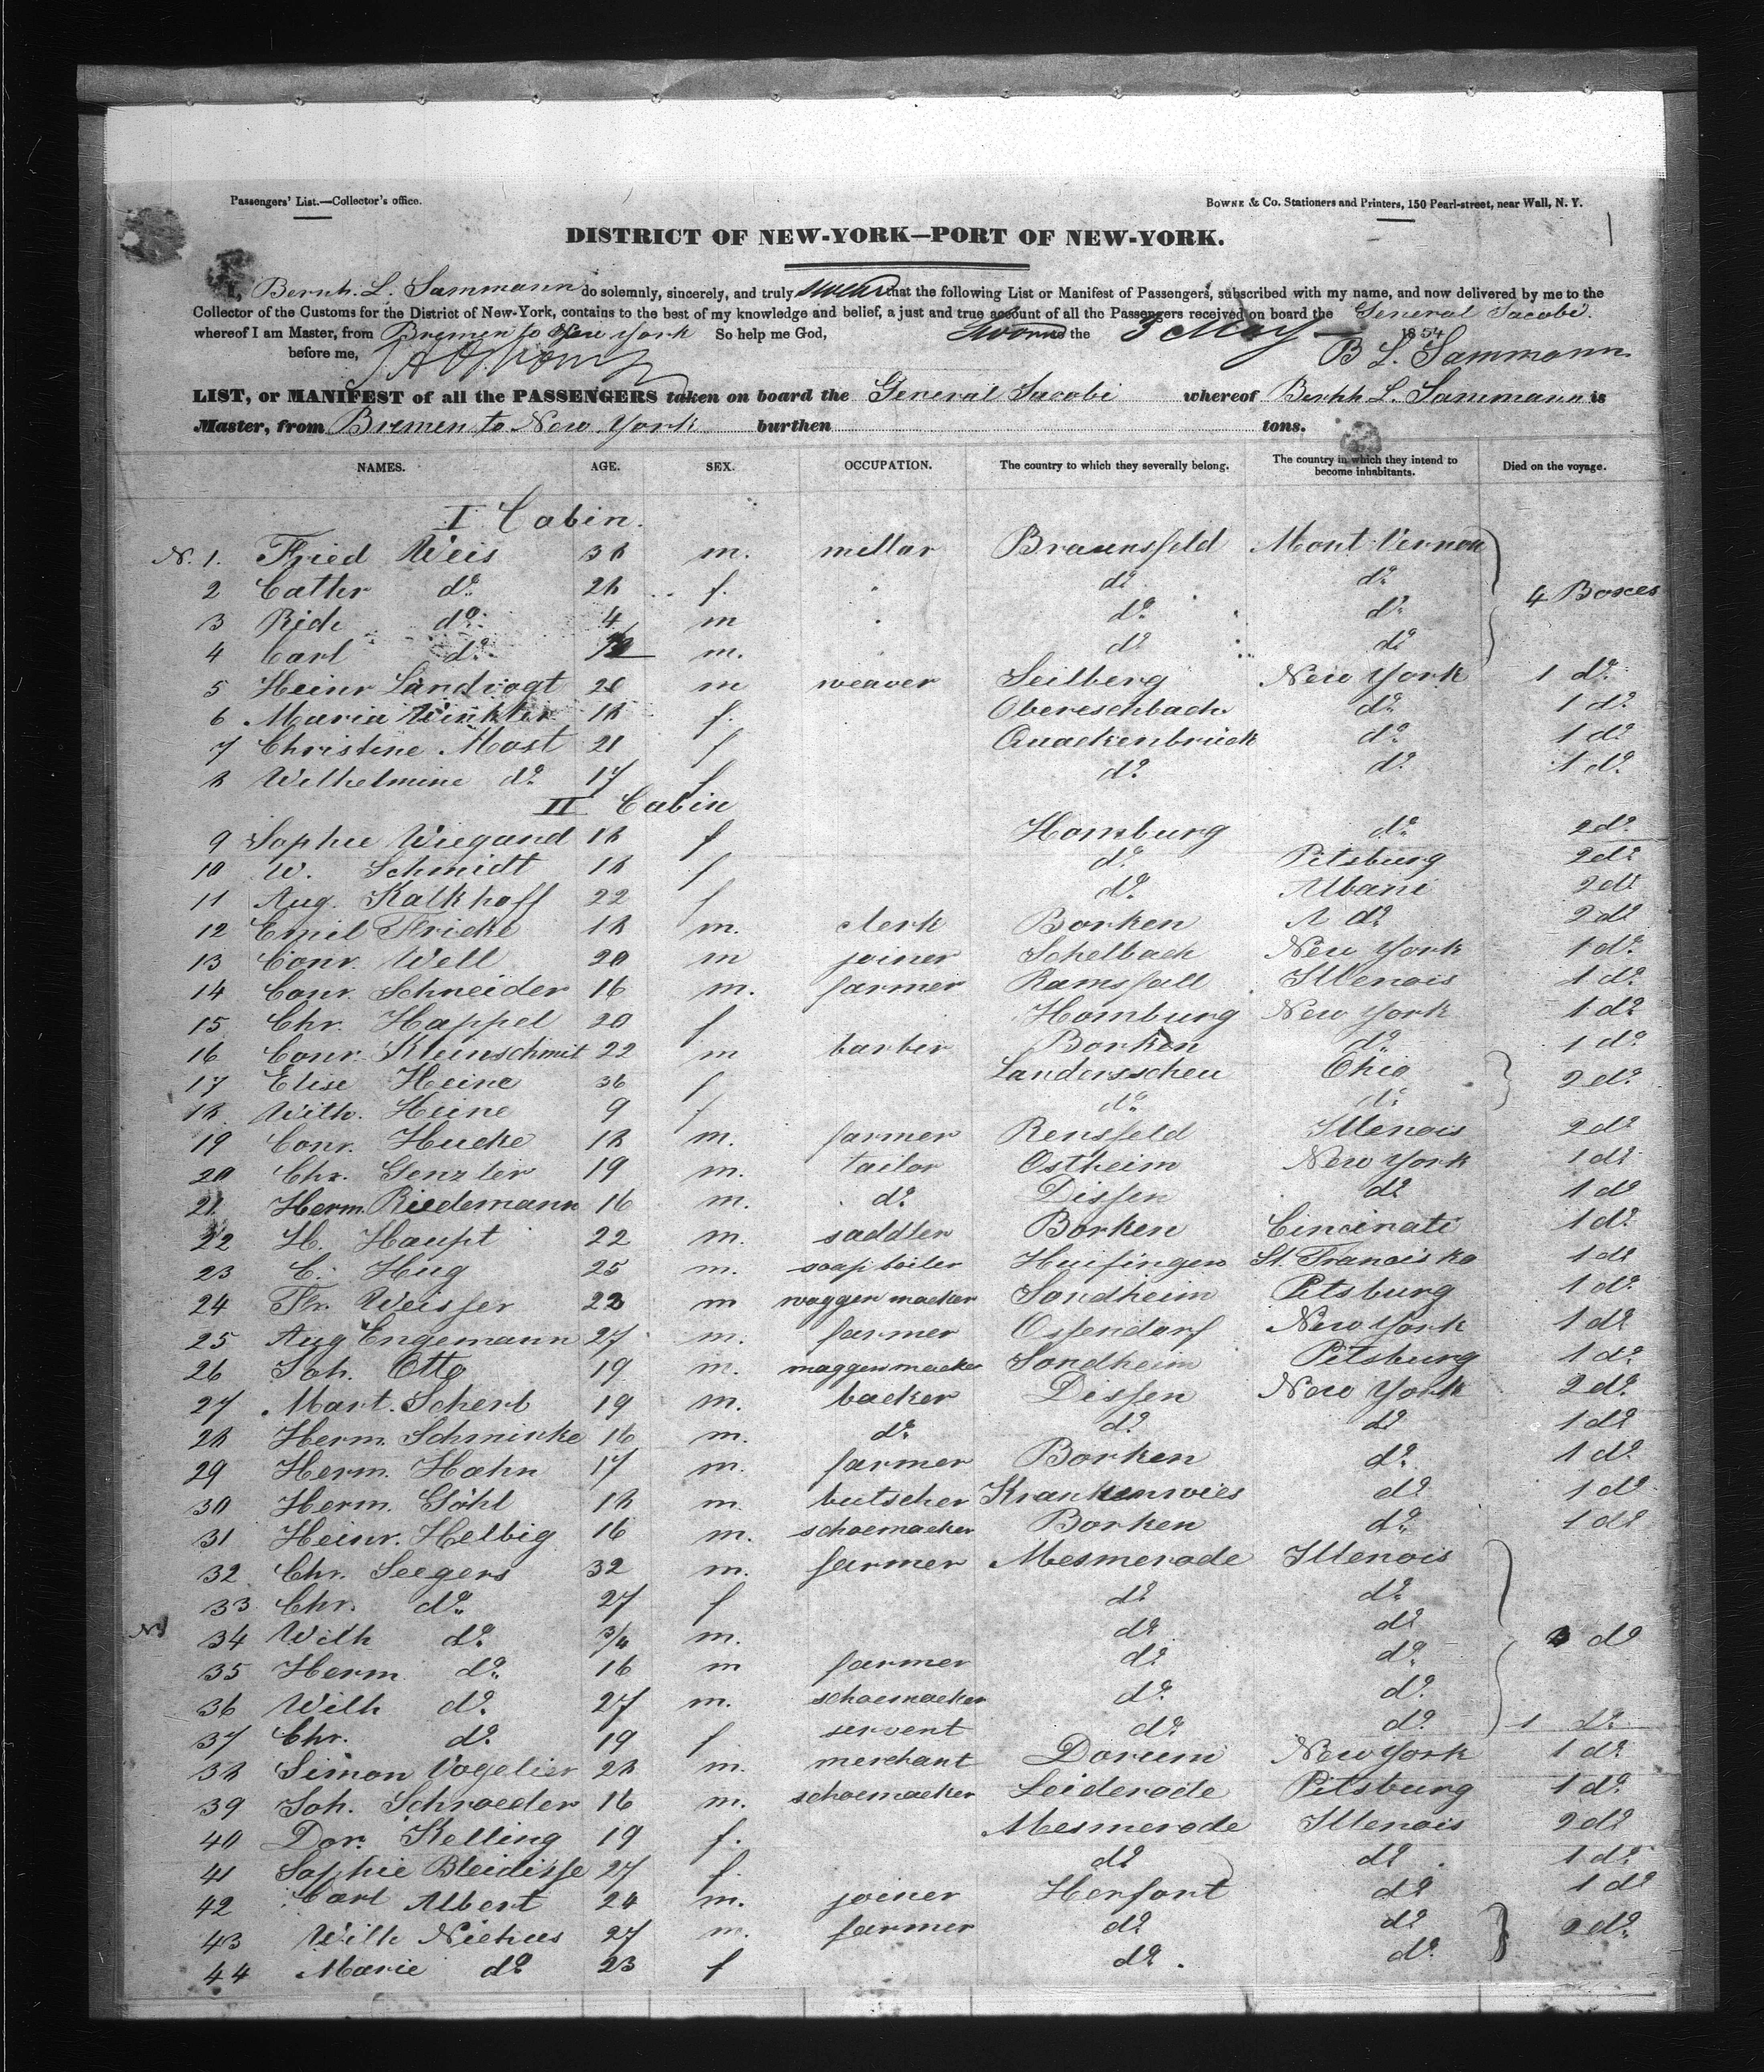 Passengers' List.—Collector's office. BOWNE & Co. Stationers and Printers, 150 Pearl-street, near Wall, N. Y.
1
DISTRICT OF NEW-YORK—PORT OF NEW-YORK.
I, Bernh. L. Sammann do solemnly, sincerely, and truly swear that the following List or Manifest of Passengers, subscribed with my name, and now delivered by me to the
Collector of the Customs for the District of New-York, contains to the best of my knowledge and belief, a just and true account of all the Passengers received on board the General Jacobi.
whereof I am Master, from Bremen to New York So help me God, Sworn the 3 May 1854
before me, B L. Sammann
LIST, or MANIFEST of all the PASSENGERS taken on board the General Jacobi whereof Bernh L. Sammann is
Master, from Bremen to New York burthen tons.
NAMES. AGE. SEX. OCCUPATION. The country to which they severally belong. The country in which they intend to become inhabitants. Died on the voyage.
I Cabin.
N. 1. Fried Weis 38 m. millar Braunsfeld Mont Vernon
2 Cathr do. 28 f. do do. 4 Boxes
3 Ride do. 4 m do. do.
4 Carl do. m. do do
5 Heinr Landvogt 20 m weaver Seilberg New York 1 do.
6 Maria Winkler 18 f. Obereschbach do. 1 do.
7 Christine Mast 21 f Quackenbrück do. 1 do.
8 Wilhelmine do. 17 f do. do. 1 do.
II Cabin
9 Sophie Wiegand 18 f Homburg do. 2 do.
10 W. Schmidt 18 f do. Pitsburg 2 do
11 Aug. Kalkhoff 22 f do. Albani 2 do
12 Emil Fricke 18 m. clerk Borken A do. 2 do
13 Conr. Well 20 m joiner Schelbach New York 1 do.
14 Conr. Schneider 16 m. farmer Ramsfall Illenois 1 do.
15 Chr. Happel 20 f Homburg New York 1 do
16 Conr. Kleinschmit 22 m barber Borken do. 1 do.
17 Elise Heine 36 f Landersscheu Ohio 2 do.
18. Wilh. Heine 9 f do. do.
19 Conr. Hucke 18 m. farmer Rensfeld Illenois 2 do
20 Chr. Genzler 19 m. tailor Ostheim New York 1 do.
21. Herm. Riedemann 16 m. do. Dissen do 1 do
22 H. Haupt 22 m. saddler Borken Cincinati 1 do.
23 C. Hug 25 m. soap boiler Huifingen St. Francisko 1 do
24 Fr. Weisser 23 m waggen macker Sondheim Pitsburg 1 do.
25 Aug Engemann 27 m. farmer Ossendorf New York 1 do
26 Joh. Otto 19 m. maggen macker Sondheim Pitsburg 1 do.
27 Mart. Scherb 19 m. backer Dissen New York 2 do.
28 Herm. Schminke 16 m. do. do. do 1 do
29 Herm. Hahn 17 m. farmer Borken do. 1 do.
30 Herm. Göhl 18 m. butscher Krankenwies do 1 do.
31 Heinr. Helbig 16 m. schoemacker Borken do. 1 do
32 Chr. Seegers 32 m. farmer Mesmerode Illenois
33 Chr. do. 27 f do do.
34 Wilh do. 3/4 m. do do 3 do
35 Herm. do. 16 m farmer do do.
36 Wilh do. 27 m. schoemacker do. do.
37 Chr. do. 19 f servent do. do. 1 do.
38 Simon Vogelier 28 m. merchant Dorum New York 1 do.
39 Joh. Schroeder 16 m. schoemacker Leiderode Pitsburg 1 do.
40 Dor. Kelling 19 f. Mesmerode Illenois 2 do
41 Sophie Bleidisse 27 f. do do 1 do
42 Carl Albert 24 m. joiner Herfort do 1 do
43 Wilh Niehus 27 m. farmer do. do 2 do.
44 Marie do 23 f do. do.